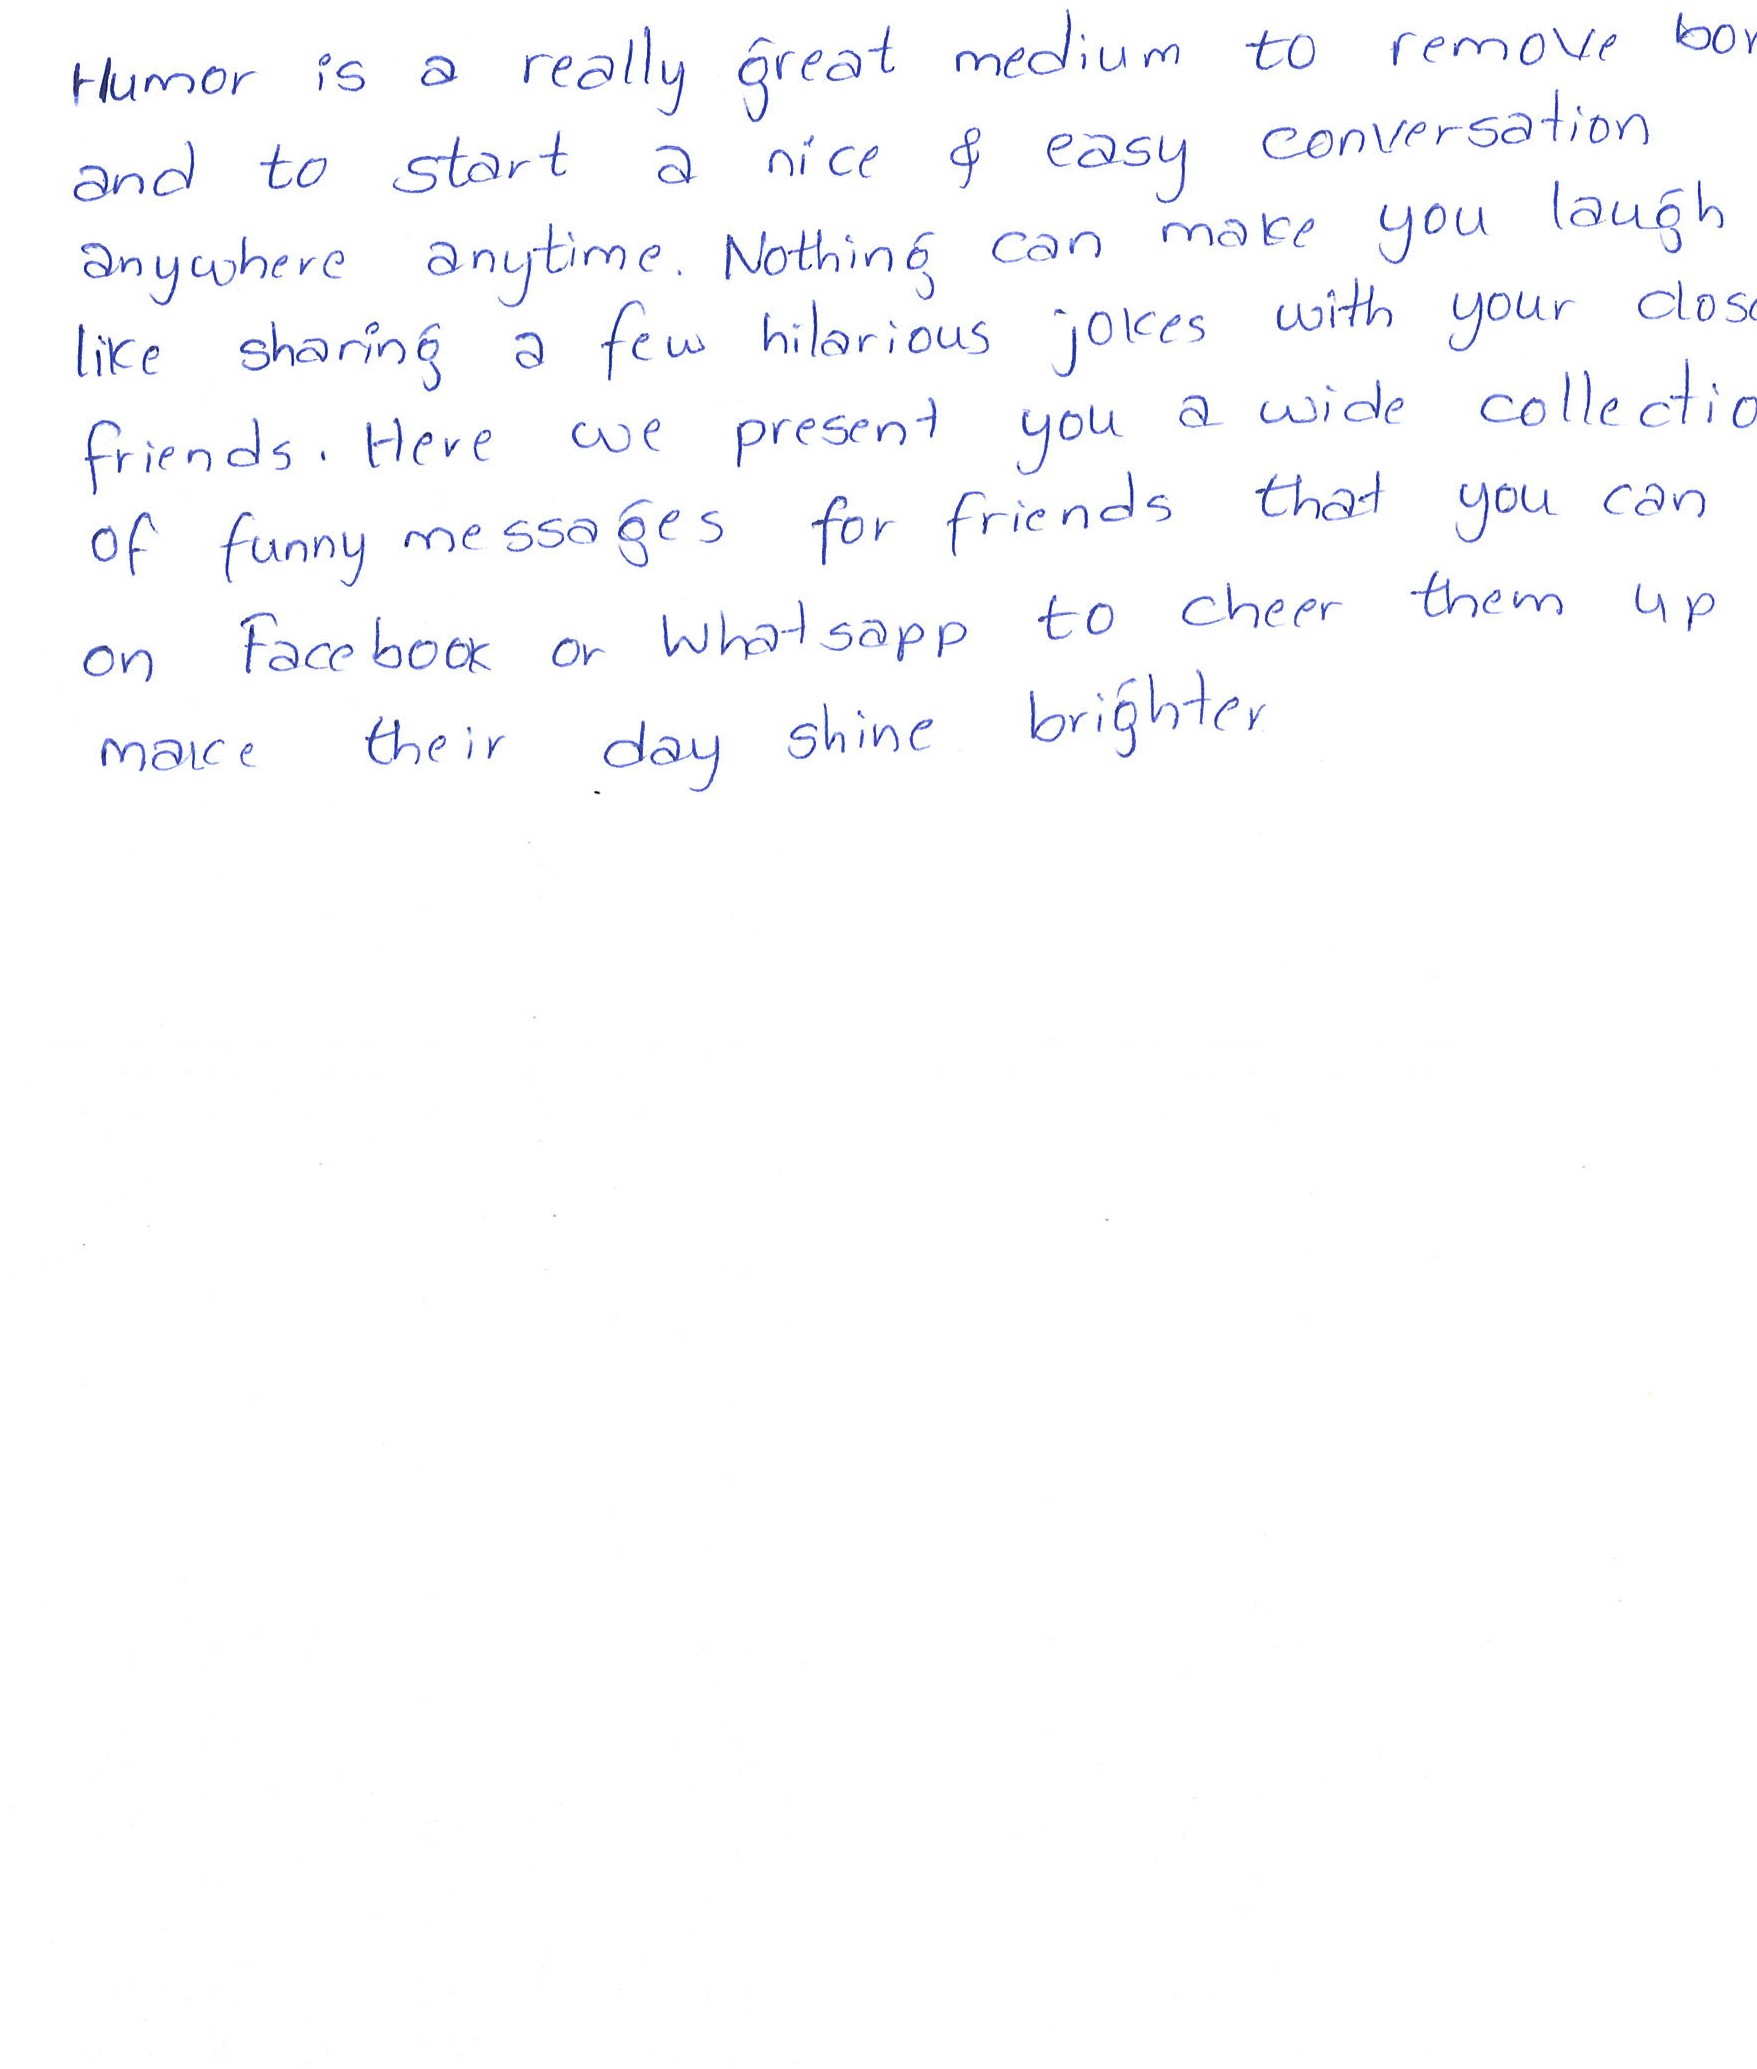 Humor is a really great medium to remove bor
and to start a nice & easy conversation
anywhere anytime. Nothing can make you laugh
like sharing a few hilarious jokes with your clos
friends. Here we present you a wide collectio
of funny messages for friends that you can
on Facebook or Whatsapp to cheer them up
make their day shine brighter